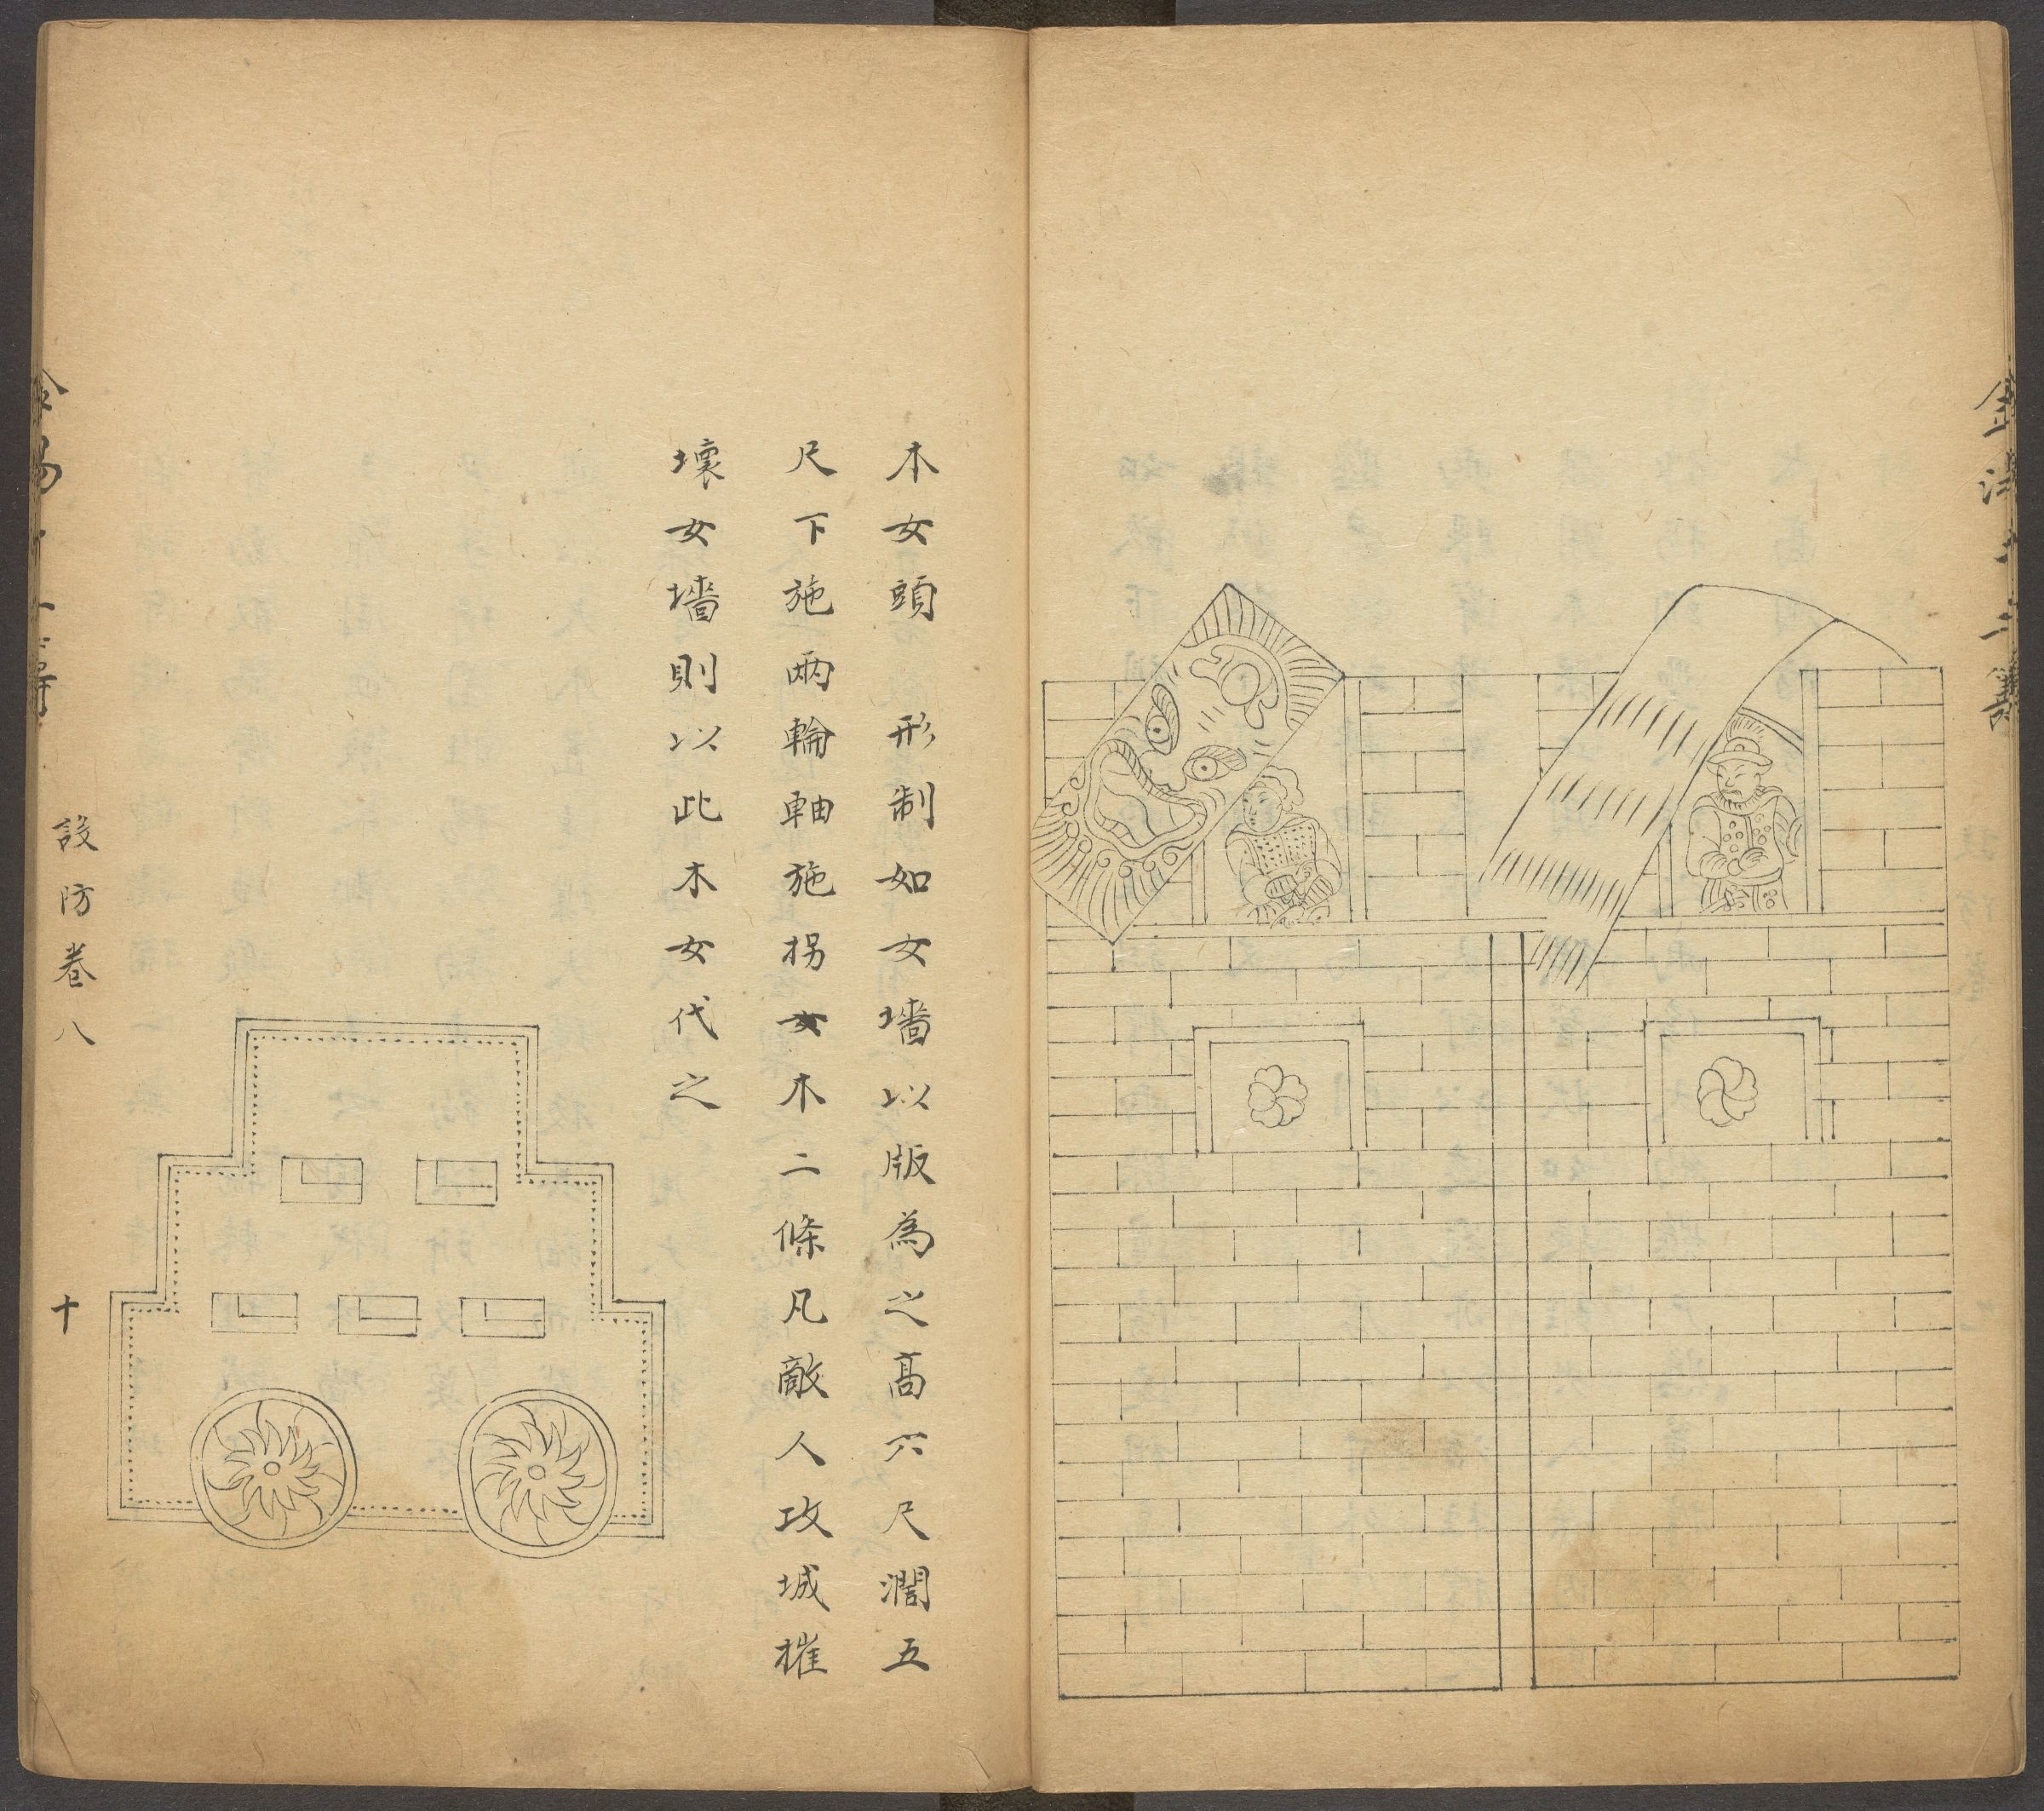 木女頭 形制如女墻以版為之髙六尺濶五
尺下施兩輪軸施拐女木二條凡敵人攻城摧
壞女墻則以此木女代之
設防卷八
十